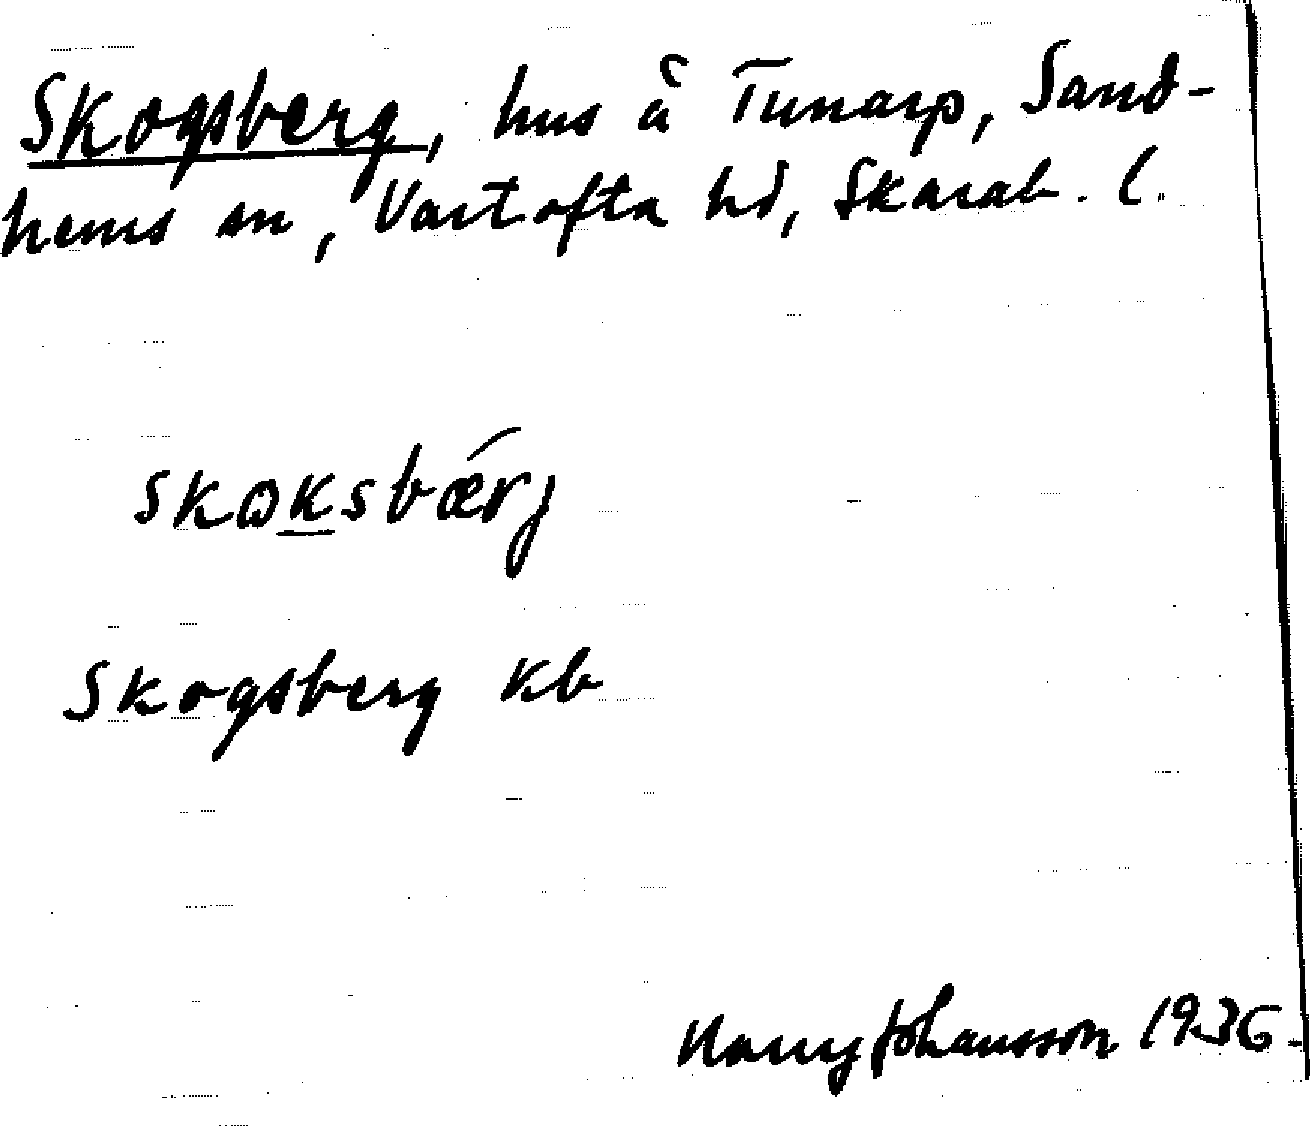 Skogsberg, hus å Tunarp, Sand-
hems sn, Vartofta hd, Skarab. l.
skoksbǽrj
Skogsberg kb
Harry Johansson 1936.